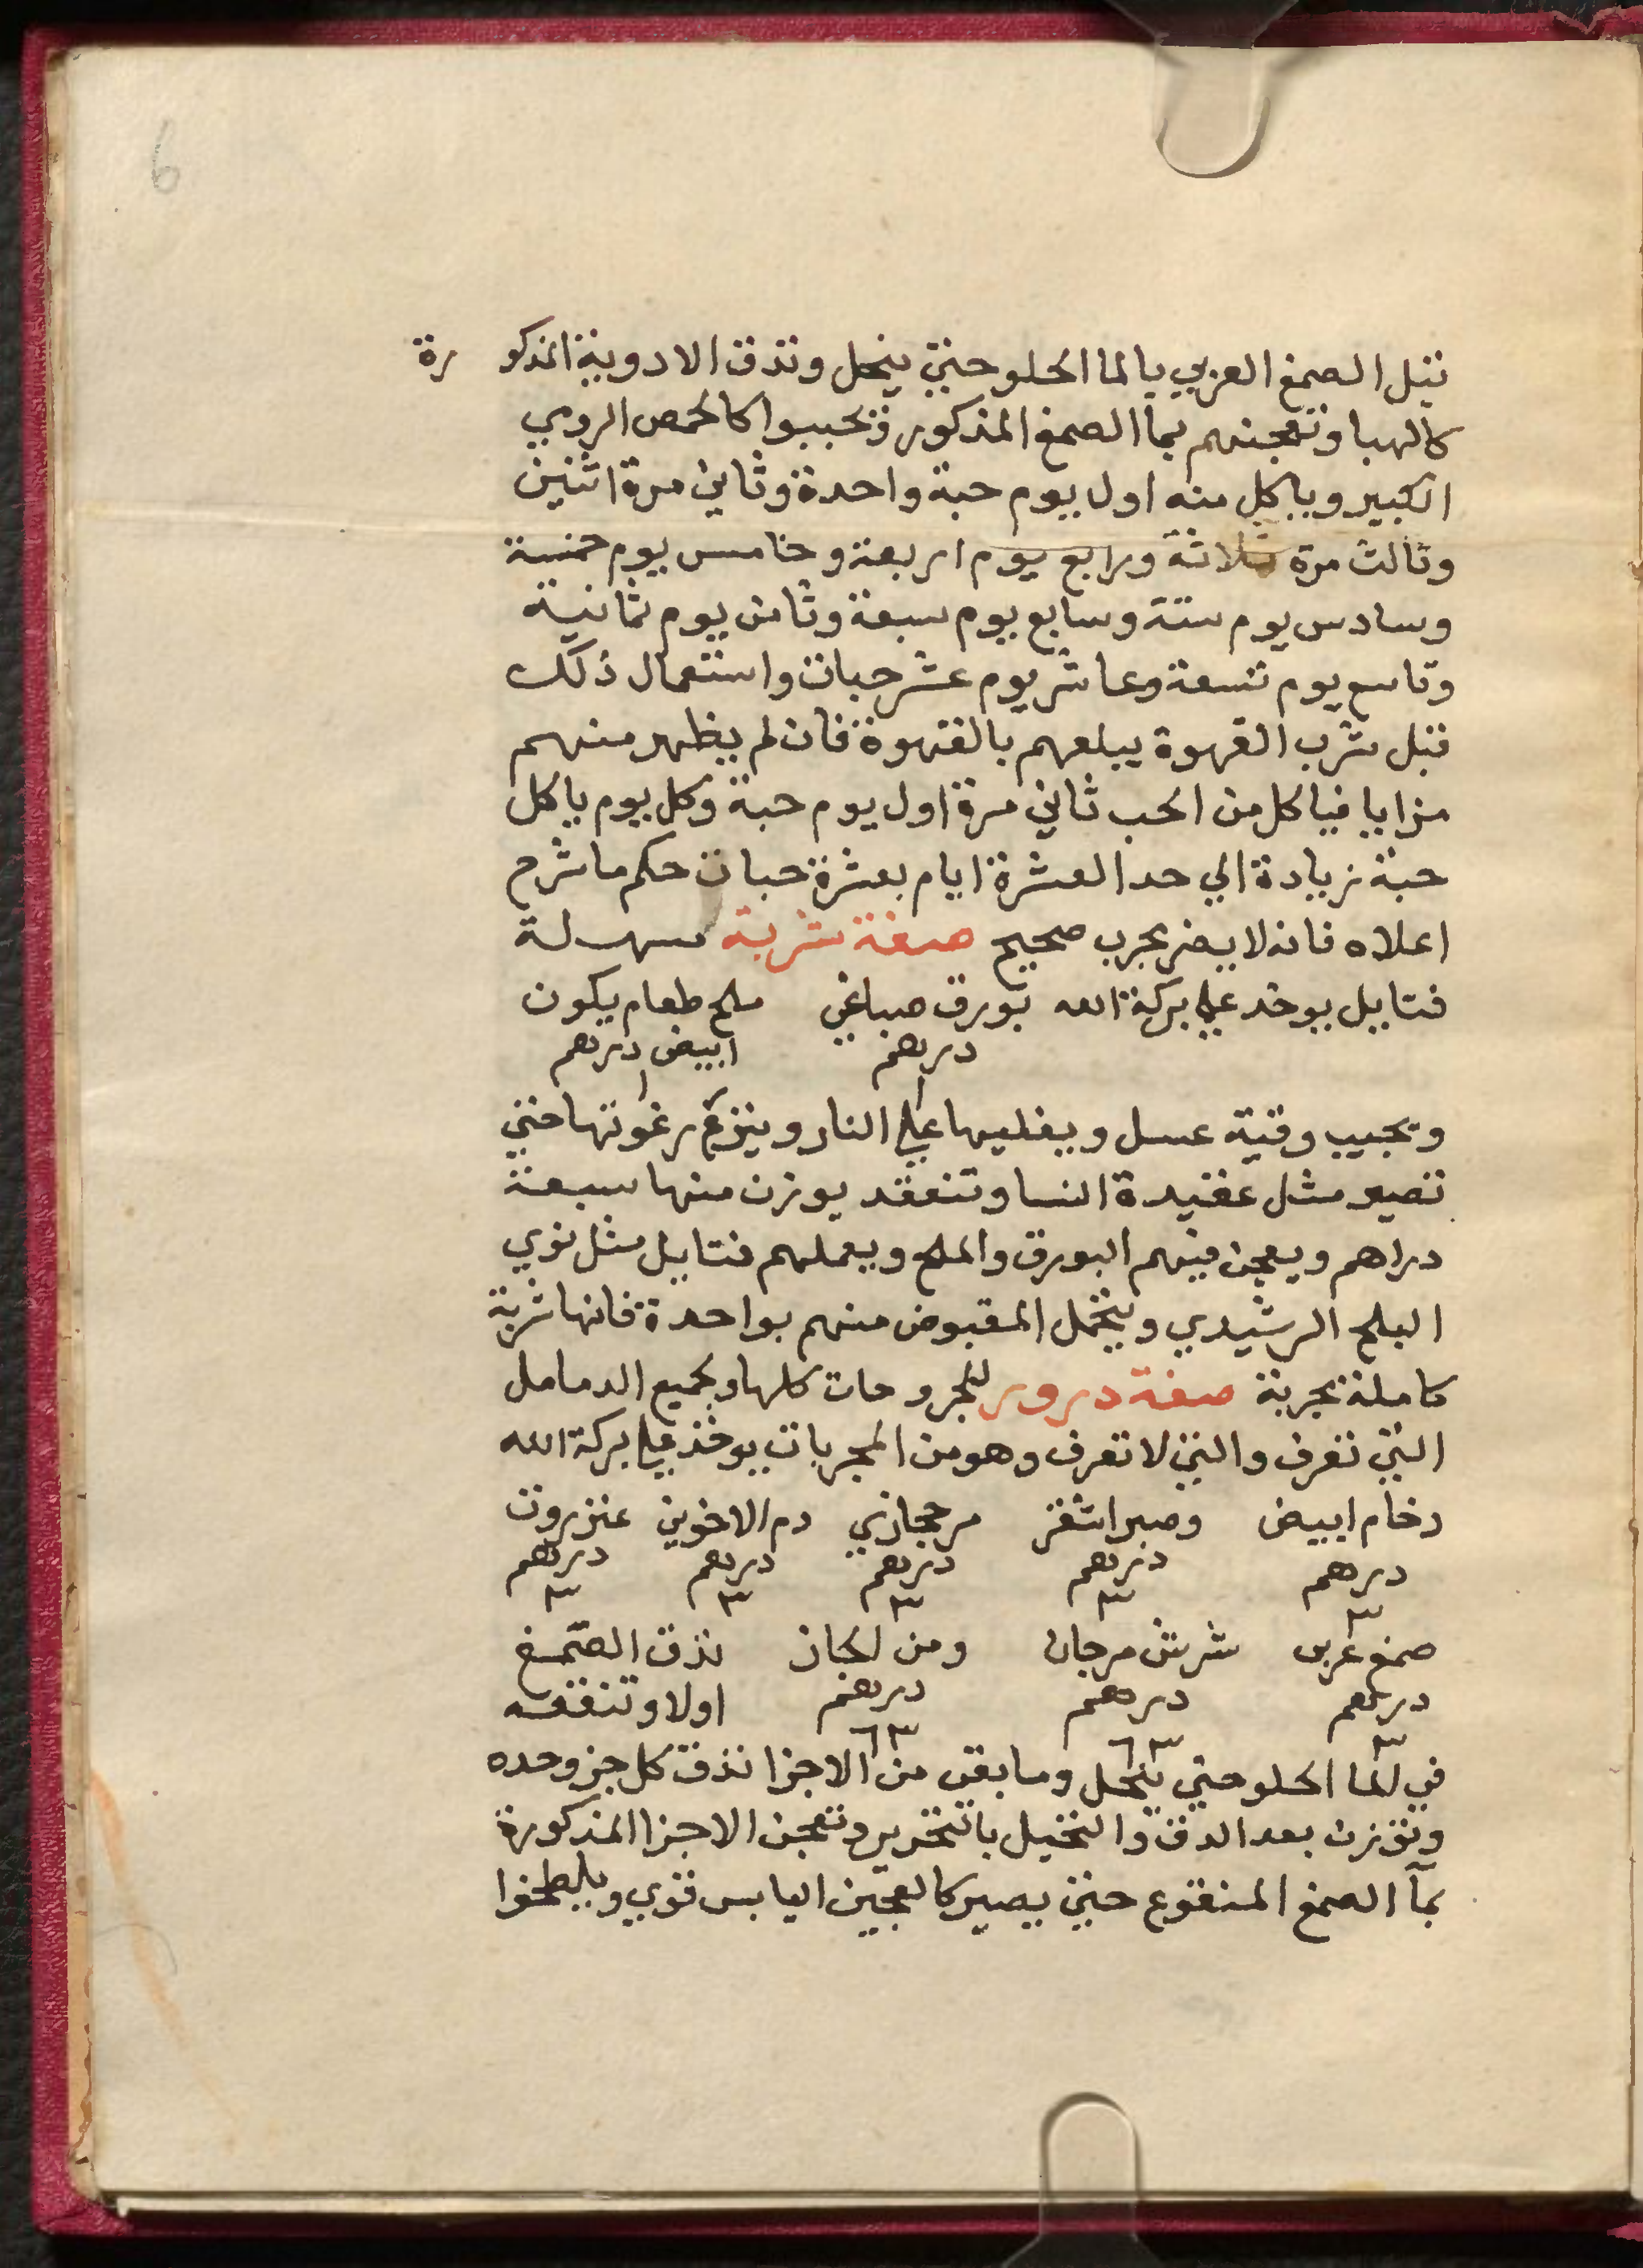 6
تبل الصمغ العربي بالما الحلو حتي ينحل وتدق الادوية المذكورة
كالهبا وتعجنهم بما الصمغ المذكور وتحببوا كالحمص الرومي
الكبير وياكل منه اول يوم حبة واحدة وثاني مرة اثنين
وثالث مرة ثلاثة ورابع يوم اربعة وخامس يوم خمسة
وسادس يوم ستة وسابع يوم سبعة وثامن يوم ثمانية
وتاسع يوم تسعة وعاشر يوم عشر حبات واستعمال ذلك
قبل شرب القهوة يبلعهم بالقهوة فان لم يظهر منهم
مزايا فياكل من الحب ثاني مرة اول يوم حبة وكل يوم ياكل
حبة زيادة الي حد العشرة ايام بعشرة حبات حكم ما شرح
اعلاه فانه لا يضر مجرب صحيح صفة شربة مسهلة
فتايل يوخد علي بركة الله بورق صباغي ملح طعام يكون
درهم ١ ابيض درهم ١
وتجيب وقية عسل ويغليها علي النار وينزع رغوتها حتي
تصير مثل عقيدة النسا وتنعقد يوزن منها سبعة
دراهم ويعجن فيهم البورق والملح ويعملهم فتايل مثل نوي
البلح الرشيدي ويتحمل المقبوض منهم بواحدة فانها شربة
كاملة مجربة صفة درور للجروحات كلها ولجميع الدمامل
التي تعرف والتي لا تعرف وهو من المجربات يوخذ علي بركة الله
رخام ابيض وصبر اشقر مر حجازي دم الاخوين عنزروت
درهم ٣ درهم ٣ درهم ٣ درهم ٣ درهم ٣
صمغ عربي شرش مرجان ومن لجان تدق الصمغ
درهم ٣ درهم ٣ درهم ٣ اولا وتنقعه
في الما الحلو حتي ينحل وما بقي من الاجزا تدق كل جز وحده
وتوزن بعد الدق والنخيل بالتحرير وتعجن الاجزا المذكورة
بمآ الصمغ المنقوع حتي يصير كالعجين اليابس قوي ويلطخوا